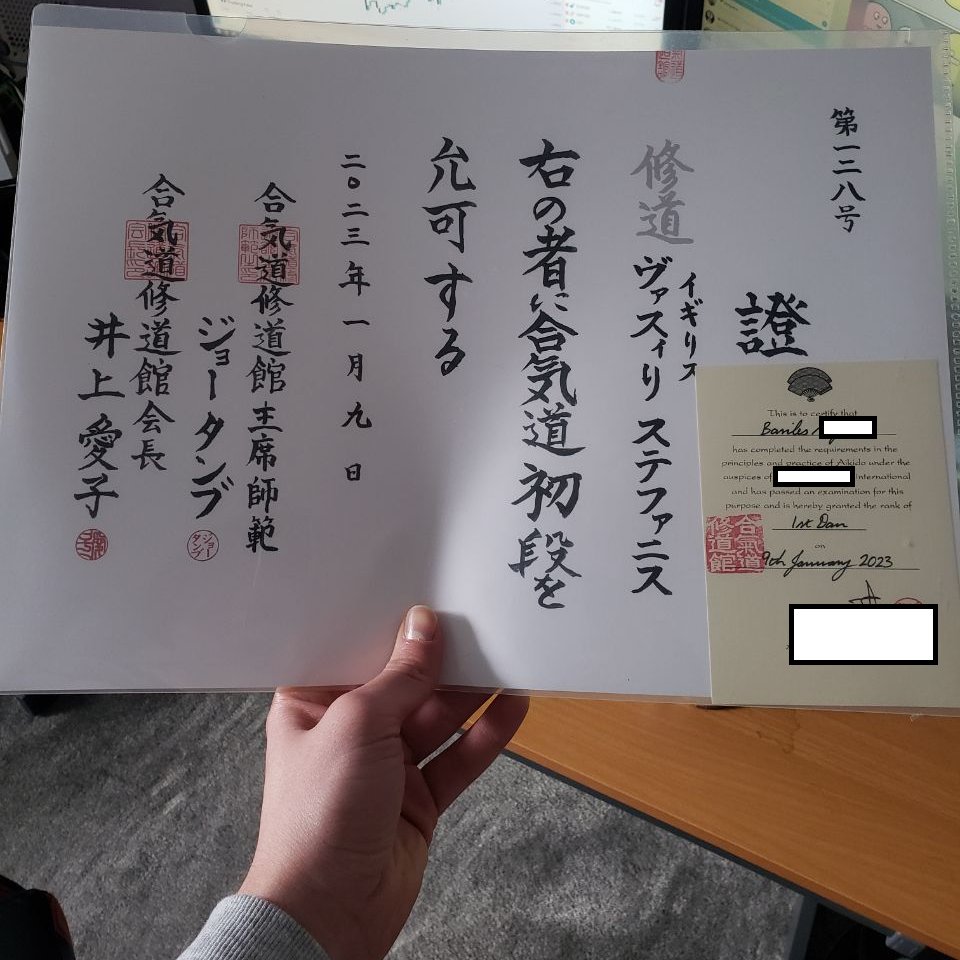 第一二八号
證
イギリス
修道 ヴァスィリ ステファニス
右の者に合気道初段を
允可する
二〇二三年一月九日
合気道修道館主席師範
ジョータンブ
ジョータンブ
合気道修道館会長
井上愛子
This is to certify that
has completed the requirements in the
principles and practice of Aikido under the
auspices of International
and has passed an examination for this
purpose and is hereby granted the rank of
1st Dan
on
9th January 2023
合氣道
修道館